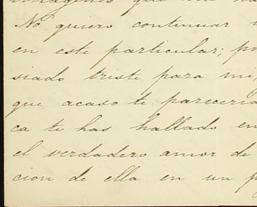 No quiero continuar
en este particular;
siado triste para mi,
que acaso te pareceria
ca te has hallado en
el verdadero amor de
cion de ella en un